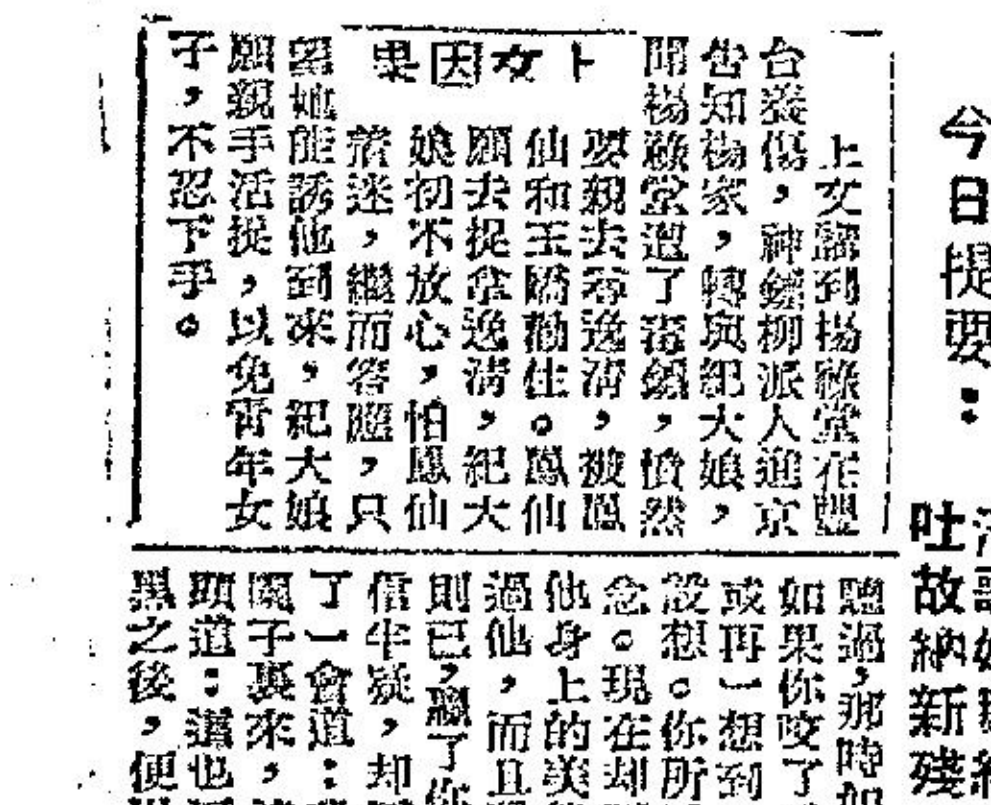 今日提要：
上文因果
上文說到楊祿堂在豐
台養傷，神鏢柳派人進京
告知楊家，轉與紀大娘，
聞楊祿堂遇了毒鏢，憤然
要親去尋逸清，被鳳
仙和玉嬌勸住。鳳仙
願去捉拿逸清，紀大
娘初不放心，怕鳳仙
着迷，繼而答應，只
望她能誘他到來，紀大娘
願親手活捉，以免青年女
子，不忍下手。
吐故納新殘
聽過，那時如
如果你咬了
或再一想到
設想。你所
念。現在却
他身上的美
過他，而且
則已，騙了你
信半疑，却
了一會道：
園子裏來，
頭道：這也
黑之後，便